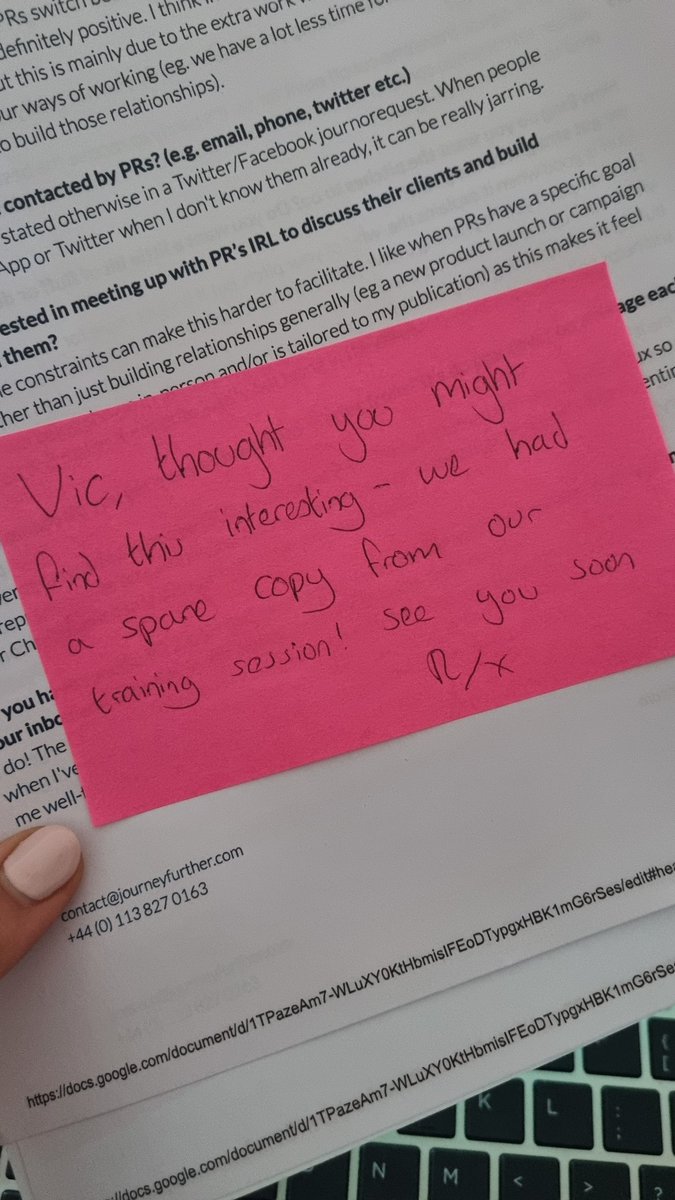 PRs switch
definitely positive. I think
but this is mainly due to the extra work
our ways of working (eg. we have a lot less time for
to build those relationships).
contacted by PRs? (e.g. email, phone, twitter etc.)
stated otherwise in a Twitter/Facebook journorequest. When people
App or Twitter when I don't know them already, it can be really jarring.
ested in meeting up with PR's IRL to discuss their clients and build
them?
e constraints can make this harder to facilitate. I like when PRs have a specific goal
ther than just building relationships generally (eg a new product launch or campaign
person and/or is tailored to my publication) as this makes it feel
age eac
ux so
Vic, thought you might
find this interesting - we had
a spare copy from our
training session! see you soon
R/x
ver
rep
r Ch
you ha
our inbo
do! The
when I've
me well-
contact@journeyfurther.com
+44 (0) 113 827 0163
https://docs.google.com/document/d/1TPazeAm7-WLuXY0KtHbmisIFEoDTypgxHBK1mG6rSes/edit#hea
//docs.google.com/document/d/1TPazeAm7-WLuXY0KtHbmisIFEoDTypgxHBK1mG6rSes
K L : ;
N M < >